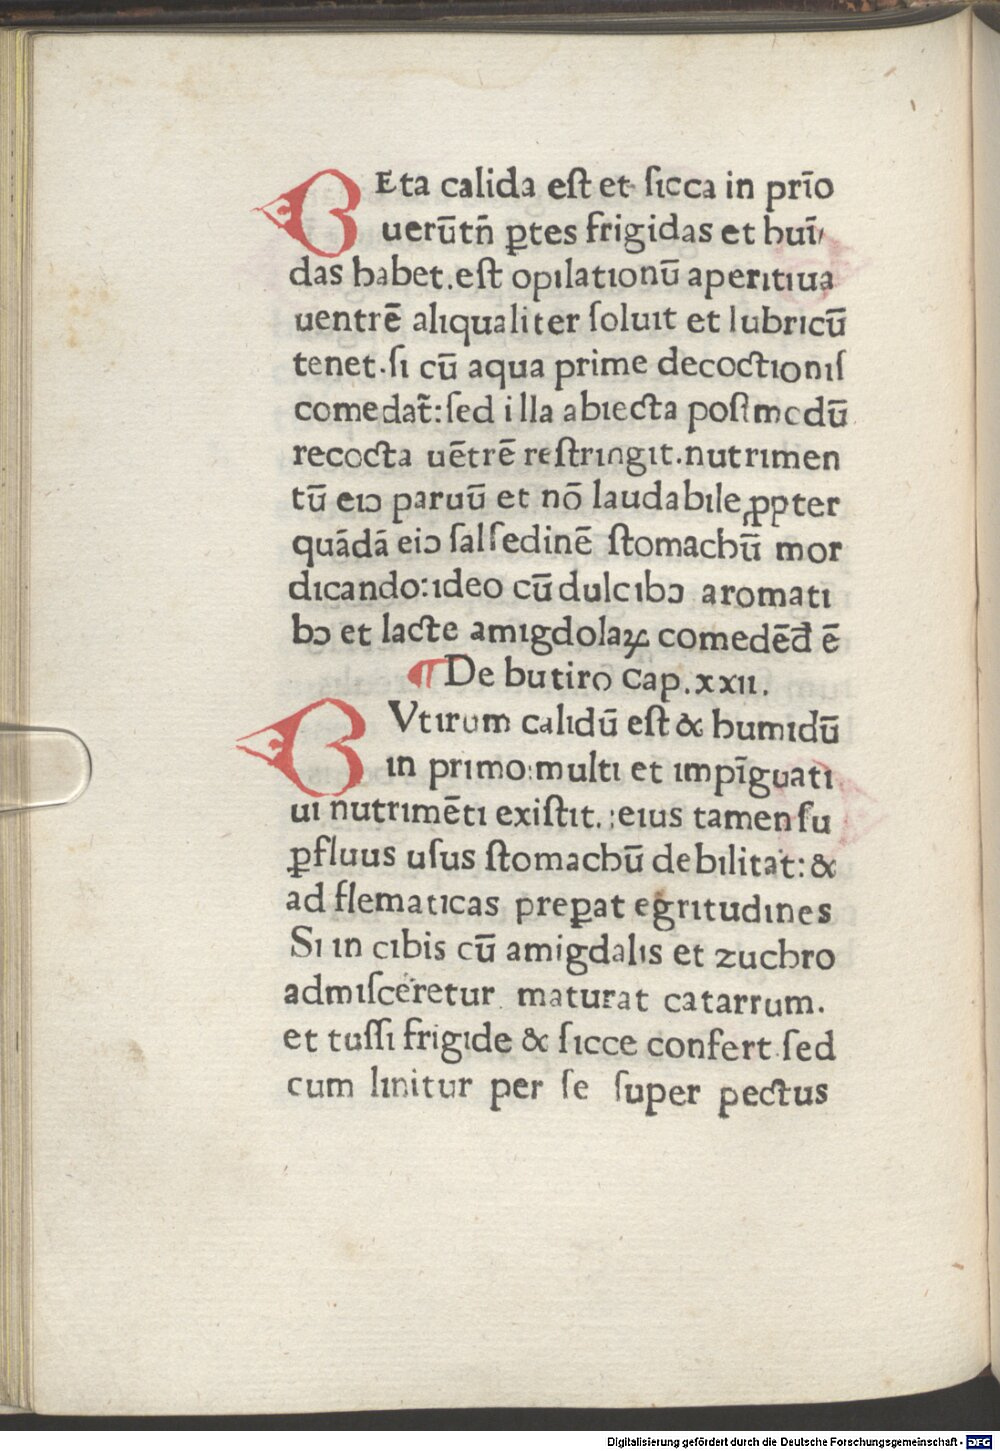 BEta calida eſt et ſicca in prīo
uerūtñ ꝑtes frigidas et huī/
das habet.eſt opilationū aperitiua
uentrē aliqualiter ſoluit et lubricū
tenet.ſi cū aqua prime decoctioniſ
comedat̃:ſed illa abiecta poſtmodū
recocta uētrē reſtringit.nutrimen
tū eiꝰ paruū et nō laudabile ꝓpter
quādā eiꝰ ſalſedinē ſtomachū mor
dicando:ideo cū dulcibꝰ aromati
bꝰ et lacte amigdolaꝝ comedēđ ē
¶De butiro Cap.xxii.
BVtirum calidū eſt & humidū
in primo:multi et impīguati
ui nutrimēti exiſtit.:eius tamen ſu
ꝑfluus uſus ſtomachū debilitat:&
ad flematicas preꝑat egritudines
Si in cibis cū amigdalis et zuchro
admiſceretur maturat catarrum.
et tuſſi frigide & ſicce confert ſed
cum linitur per ſe ſuper pectus
Digitalisierung gefördert durch die Deutsche Forschungsgemeinschaft - DFG